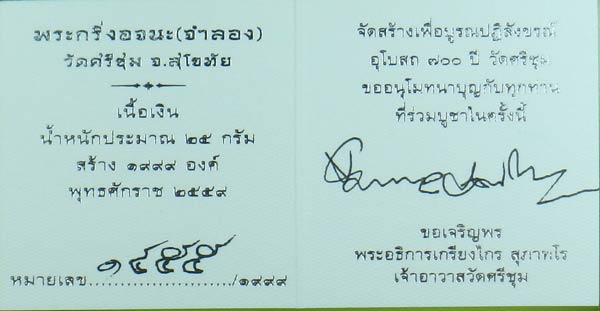 พระกริ่งอจนะ(จำลอง)
วัดศรีชุม จ.สุโขทัย
เนื้อเงิน
น้ำหนักประมาณ ๒๕ กรัม
สร้าง ๑๙๙๙ องค์
พุทธศักราช ๒๕๕๙
หมายเลข ๑๔๕๕ /๑๙๙๙
จัดสร้างเพื่อบูรณปฏิสังขรณ์
อุโบสถ ๗๐๐ ปี วัดศรีชุม
ขออนุโมทนาบุญกับทุกท่าน
ที่ร่วมบูชาในครั้งนี้
ขอเจริญพร
พระอธิการเกรียงไกร สุภาทโร
เจ้าอาวาสวัดศรีชุม